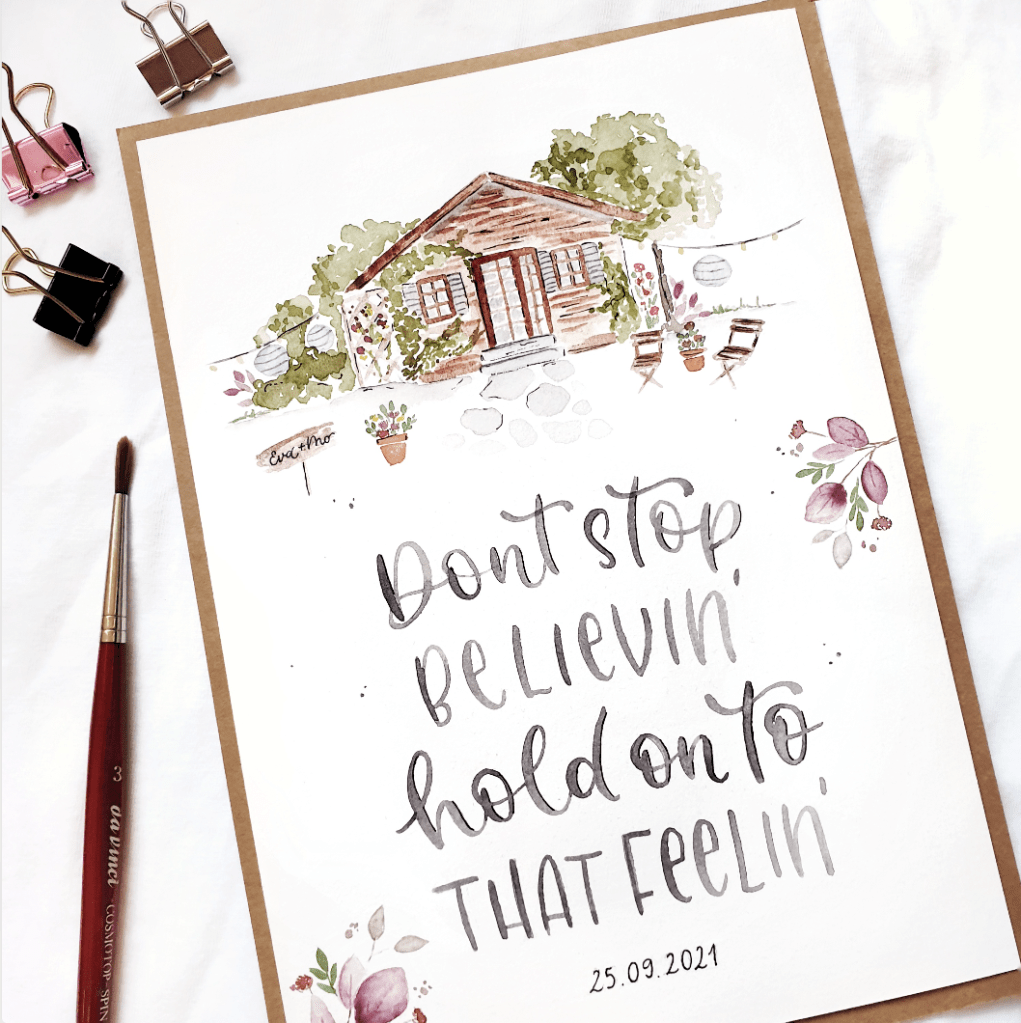 Eva + Mo
Dont stop
BELIEVIN'
hold on to
THAT FEELIN'
25.09.2021
3 da vinci COSMOTOP-SPIN